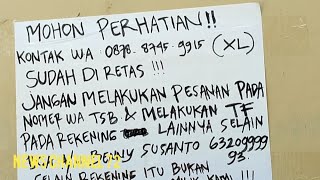 MOHON PERHATIAN!!
KONTAK WA 0878-8745-9915 (XL)
SUDAH DI RETAS !!!
JANGAN MELAKUKAN PESANAN PADA
NOMER WA TSB & MELAKUKAN TF
PADA REKENING LAINNYA SELAIN
SUSANTO 63209999
93.
SELAIN REKENING ITU BUKAN
KAMI !!!